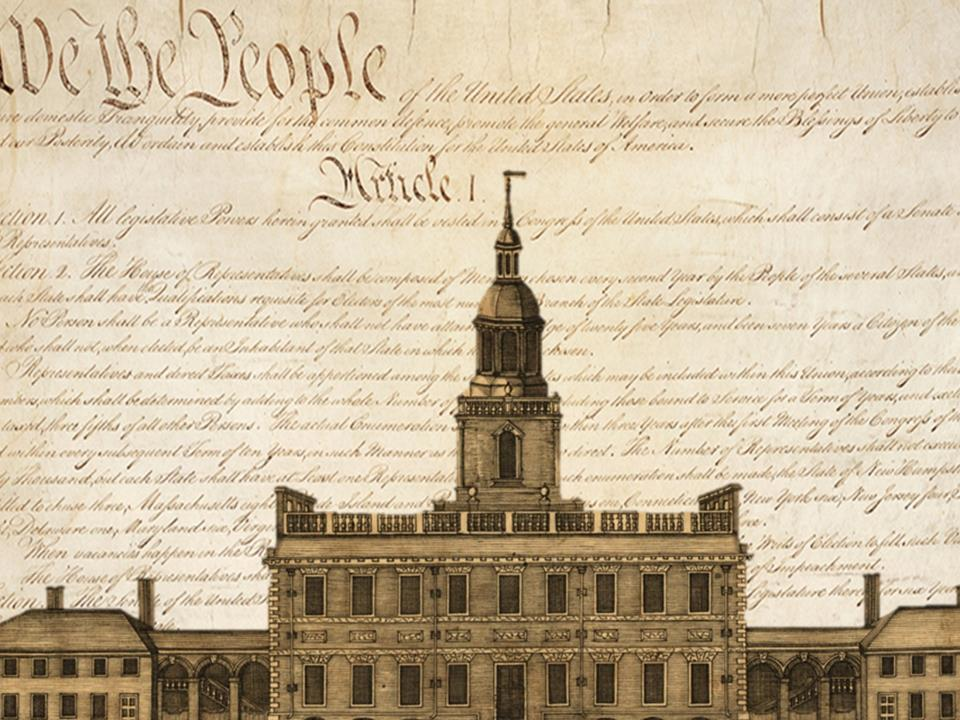 We the People of the United States, in Order to form a more perfect Union, establis
ure domestic Tranquility, provide for the common defence, promote the general Welfare, and secure the Blessings of Liberty to
our Posterity, do ordain and establish this Constitution for the United States of America.
Article. I.
ction. 1. All legislative Powers herein granted shall be vested in Congress of the United States, which shall consist of a Senate
Representatives.
ection. 2. The House of Representatives shall be composed of Me chosen every second Year by the People of the several States, a
ach State shall have Qualifications requisite for Electors of the most nu ranch of the State Legislature.
No Person shall be a Representative who shall not have attain ge of twenty five Years, and been seven Years a Citizen of the
who shall not, when elected, be an Inhabitant of that State in which h chosen.
Representatives and direct Taxes shall be apportioned among the tes which may be included within this Union, according to the
mbers, which shall be determined by adding to the whole Number of uding those bound to Service for a Term of Years, and
three fifths of all other Persons. The actual Enumeration thin three Years after the first Meeting of the Congress of
within every subsequent Term of ten Years, in such Manner as rect. The Number of Representatives shall not excee
ty Thousand, but each State shall have at Least one Representati enumeration shall made, the State of New Hampsh
tled to chuse three, Massachusetts eigh Island Connectic New York six, New Jersey four,
Delaware one, Maryland six, Virg
When vacancies happen in the R Writs of Election to fill such
The House of Representatives shall of Impeachment.
ction of the United egislature thereof for six Year